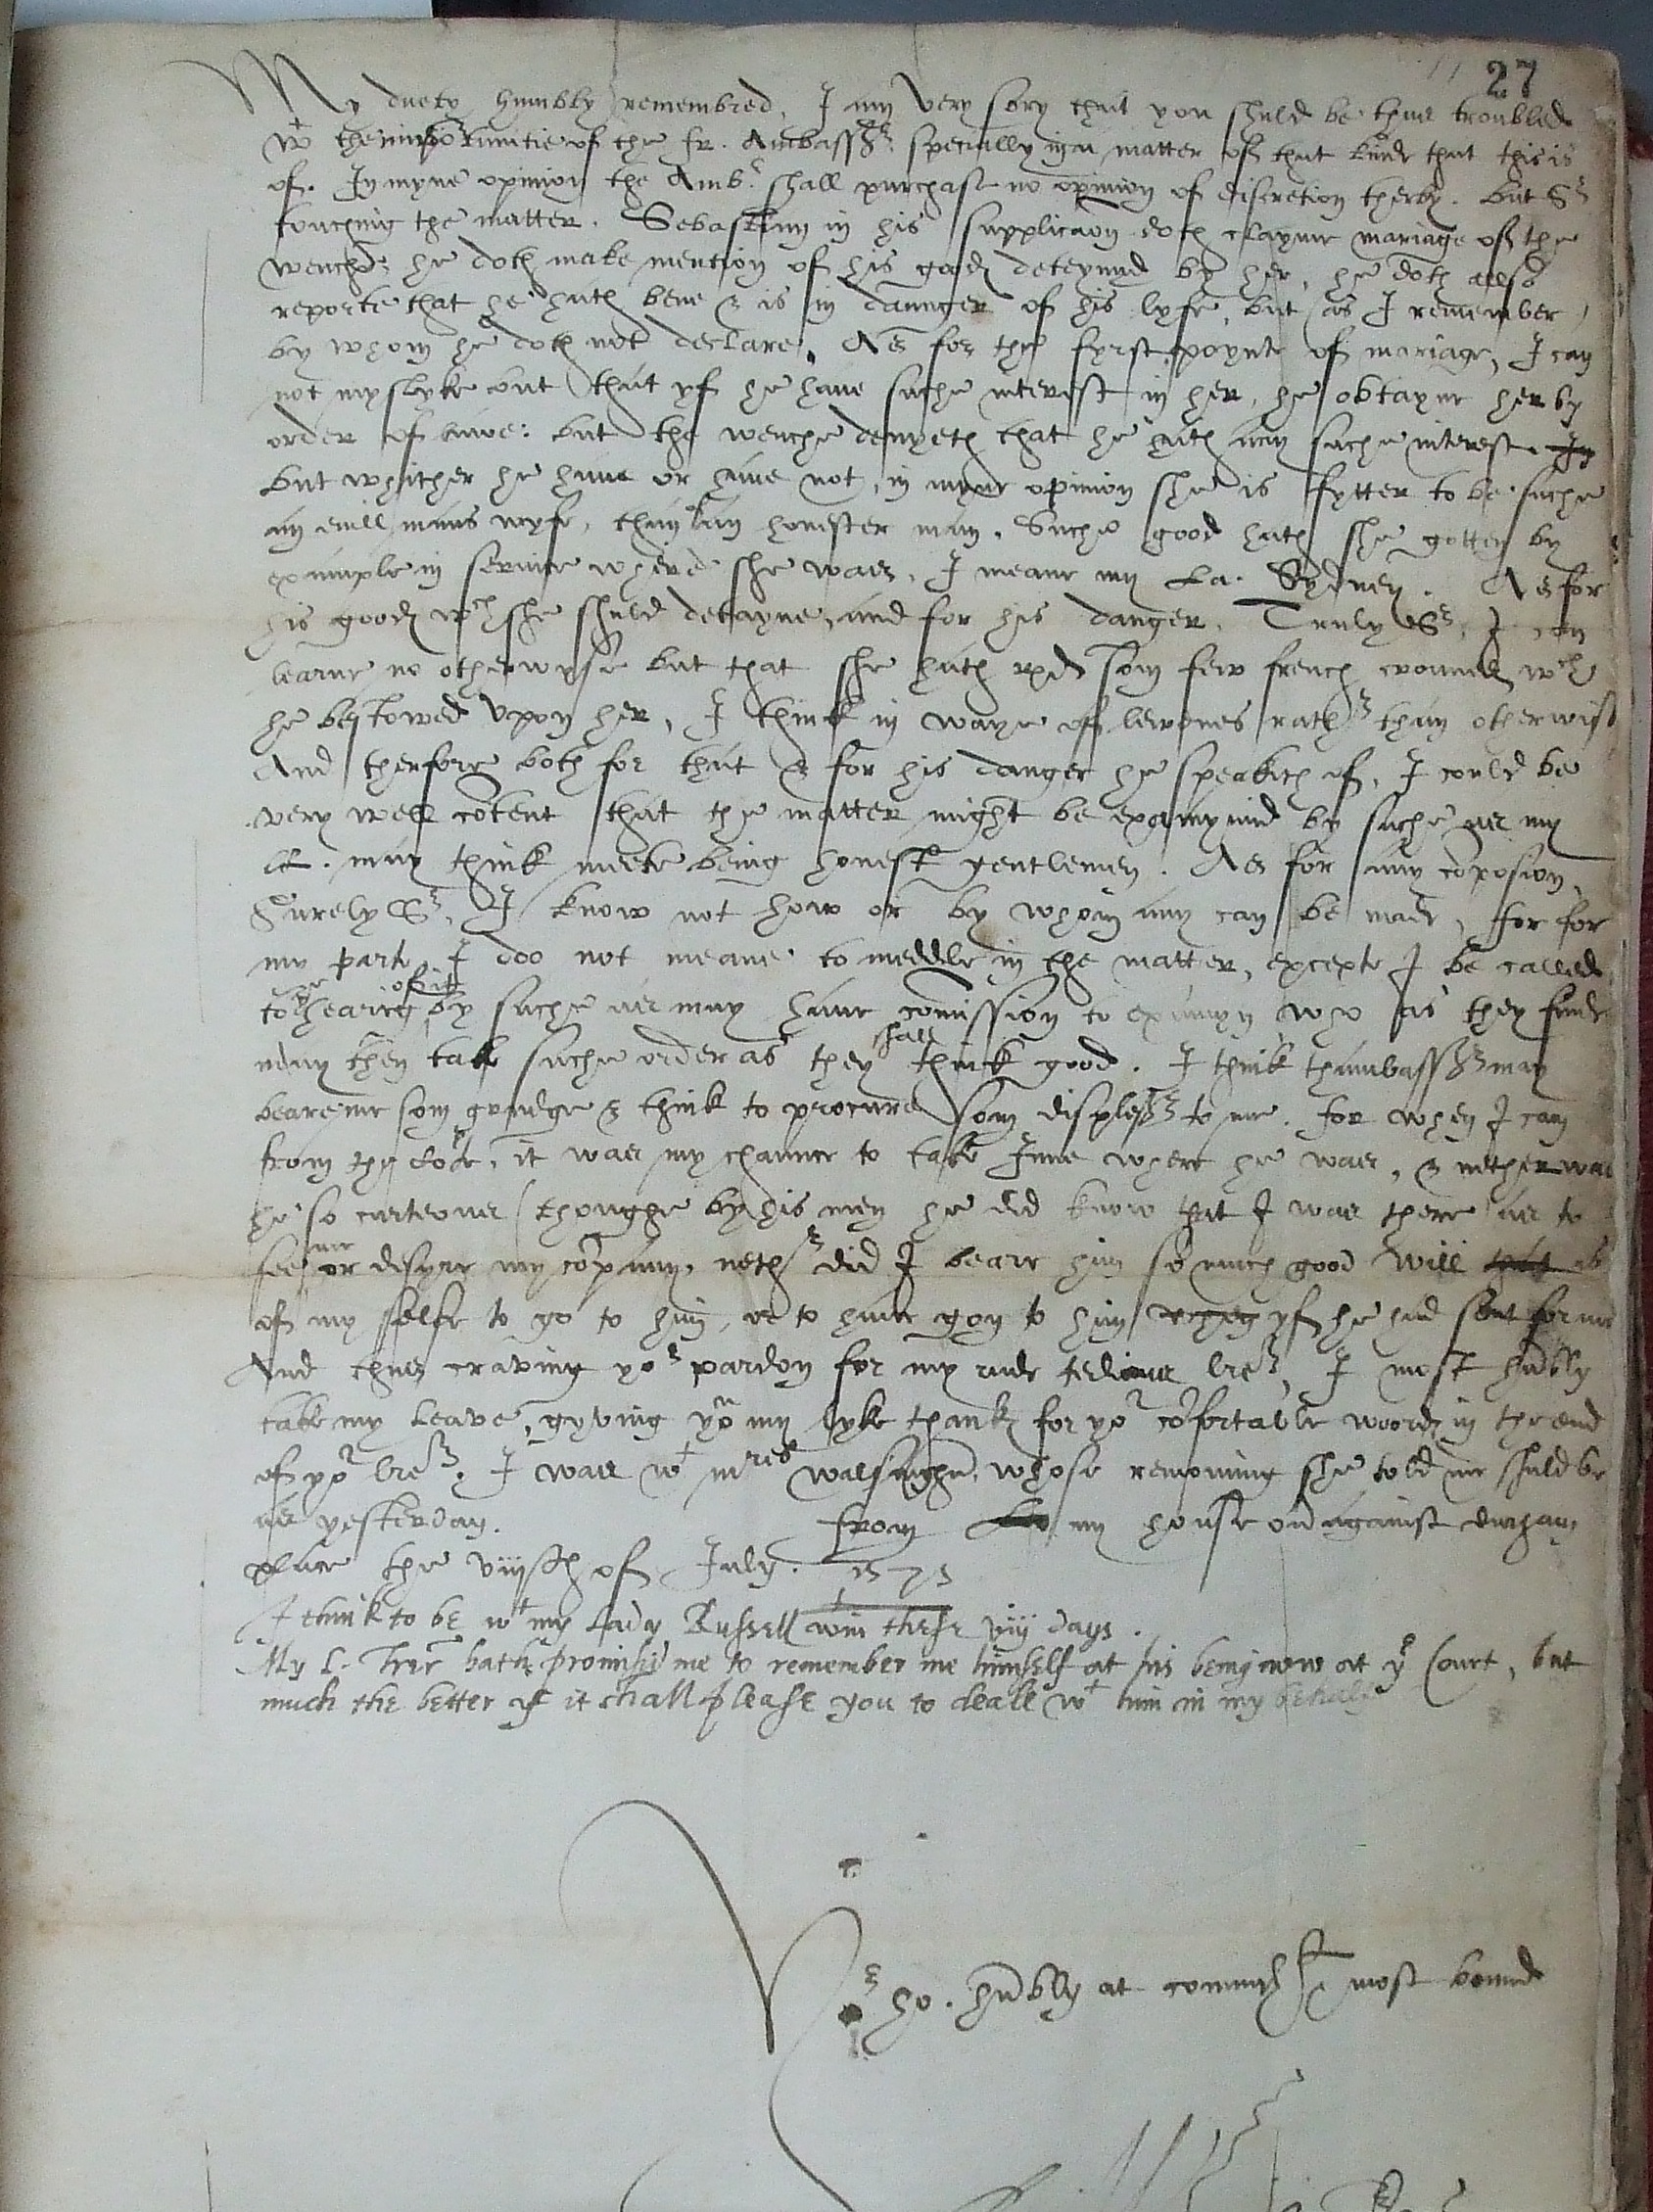 27
My duety humbly remembred. I am very sory that you shuld be thus troubled
wt the importunitie of the fr. Ambassr. specially in a matter of that kinde that this is
of. In myne opinion the Ambr. shall purchase no opinion of discretion therby. but Sr
touching the matter. Sebastian in his supplicacon doth clayme mariage of the
wenche: he doth make mention of his goods deteynid by her, he doth also
reporte that he hath bene & is in daunger of his lyfe, but (as I remember)
by whom he doth not declare. As for the fyrst poynte of mariage, I can
not myslyke but that yf he have suche interest in her, he obtayne her by
order of lawe: but the wenche denyeth that he hath any suche interest. In
but whither he have or have not, in myne opinion she is fytter to be suche
an evill mans wyfe, than an honester man. Suche good hath she gotten by
example in service where she was, I meane my La. Sydney. As for
his goods wch she shuld detayne, and for his danger. Truly Sr, I can
learne no otherwyse but that she hath rxd som few french crounes wch
he bestowed upon her, I think in waye of lewdnes rathr than otherwise
And therfore both for that & for his danger he speaketh of, I could be
very well cōtent that the matter might be examynid by suche as my
LL. may think meete being honest gentlemen. As for any cōposion,
Surely Sr, I know not how or by whom any can be made, for for
my parte I doo not meane to meddle in the matter, excepte I be called
to ye hearing of it by suche as may have comission to examyn who as they finde
may then take suche order as they shall think good. I think thambassr may
beare me som grudge & think to procure som displesr to me. for when I cam
from the , it was my chaunce to take Inne where he was, & nether was
he so curteous (thoughe by his men he did know that I was there as to
see me or desyre my cōpany, nethr did I beare him so much good will that as
of my selfe to go to him, or to have gon to him yf he had sent for me
And thus craving yor pardon for my rude tedious lres, I most hūbly
take my leave, gyving you my lyke thanks for yor cōfortable woords in the end
of yor lres. I was wt mres walsinghm, whose removing she told me shuld be
as yesterday. from my house ovr against durham
place the viijth of July. 1573
I think to be wt my Lady Russell wtin these viij days.
My L. Trer hath promised me to remember me himself at his being now at ye Court, but
much the better if it shall please you to deale wt him in my behalf
Yr ho. hūbly at commandmt most bound